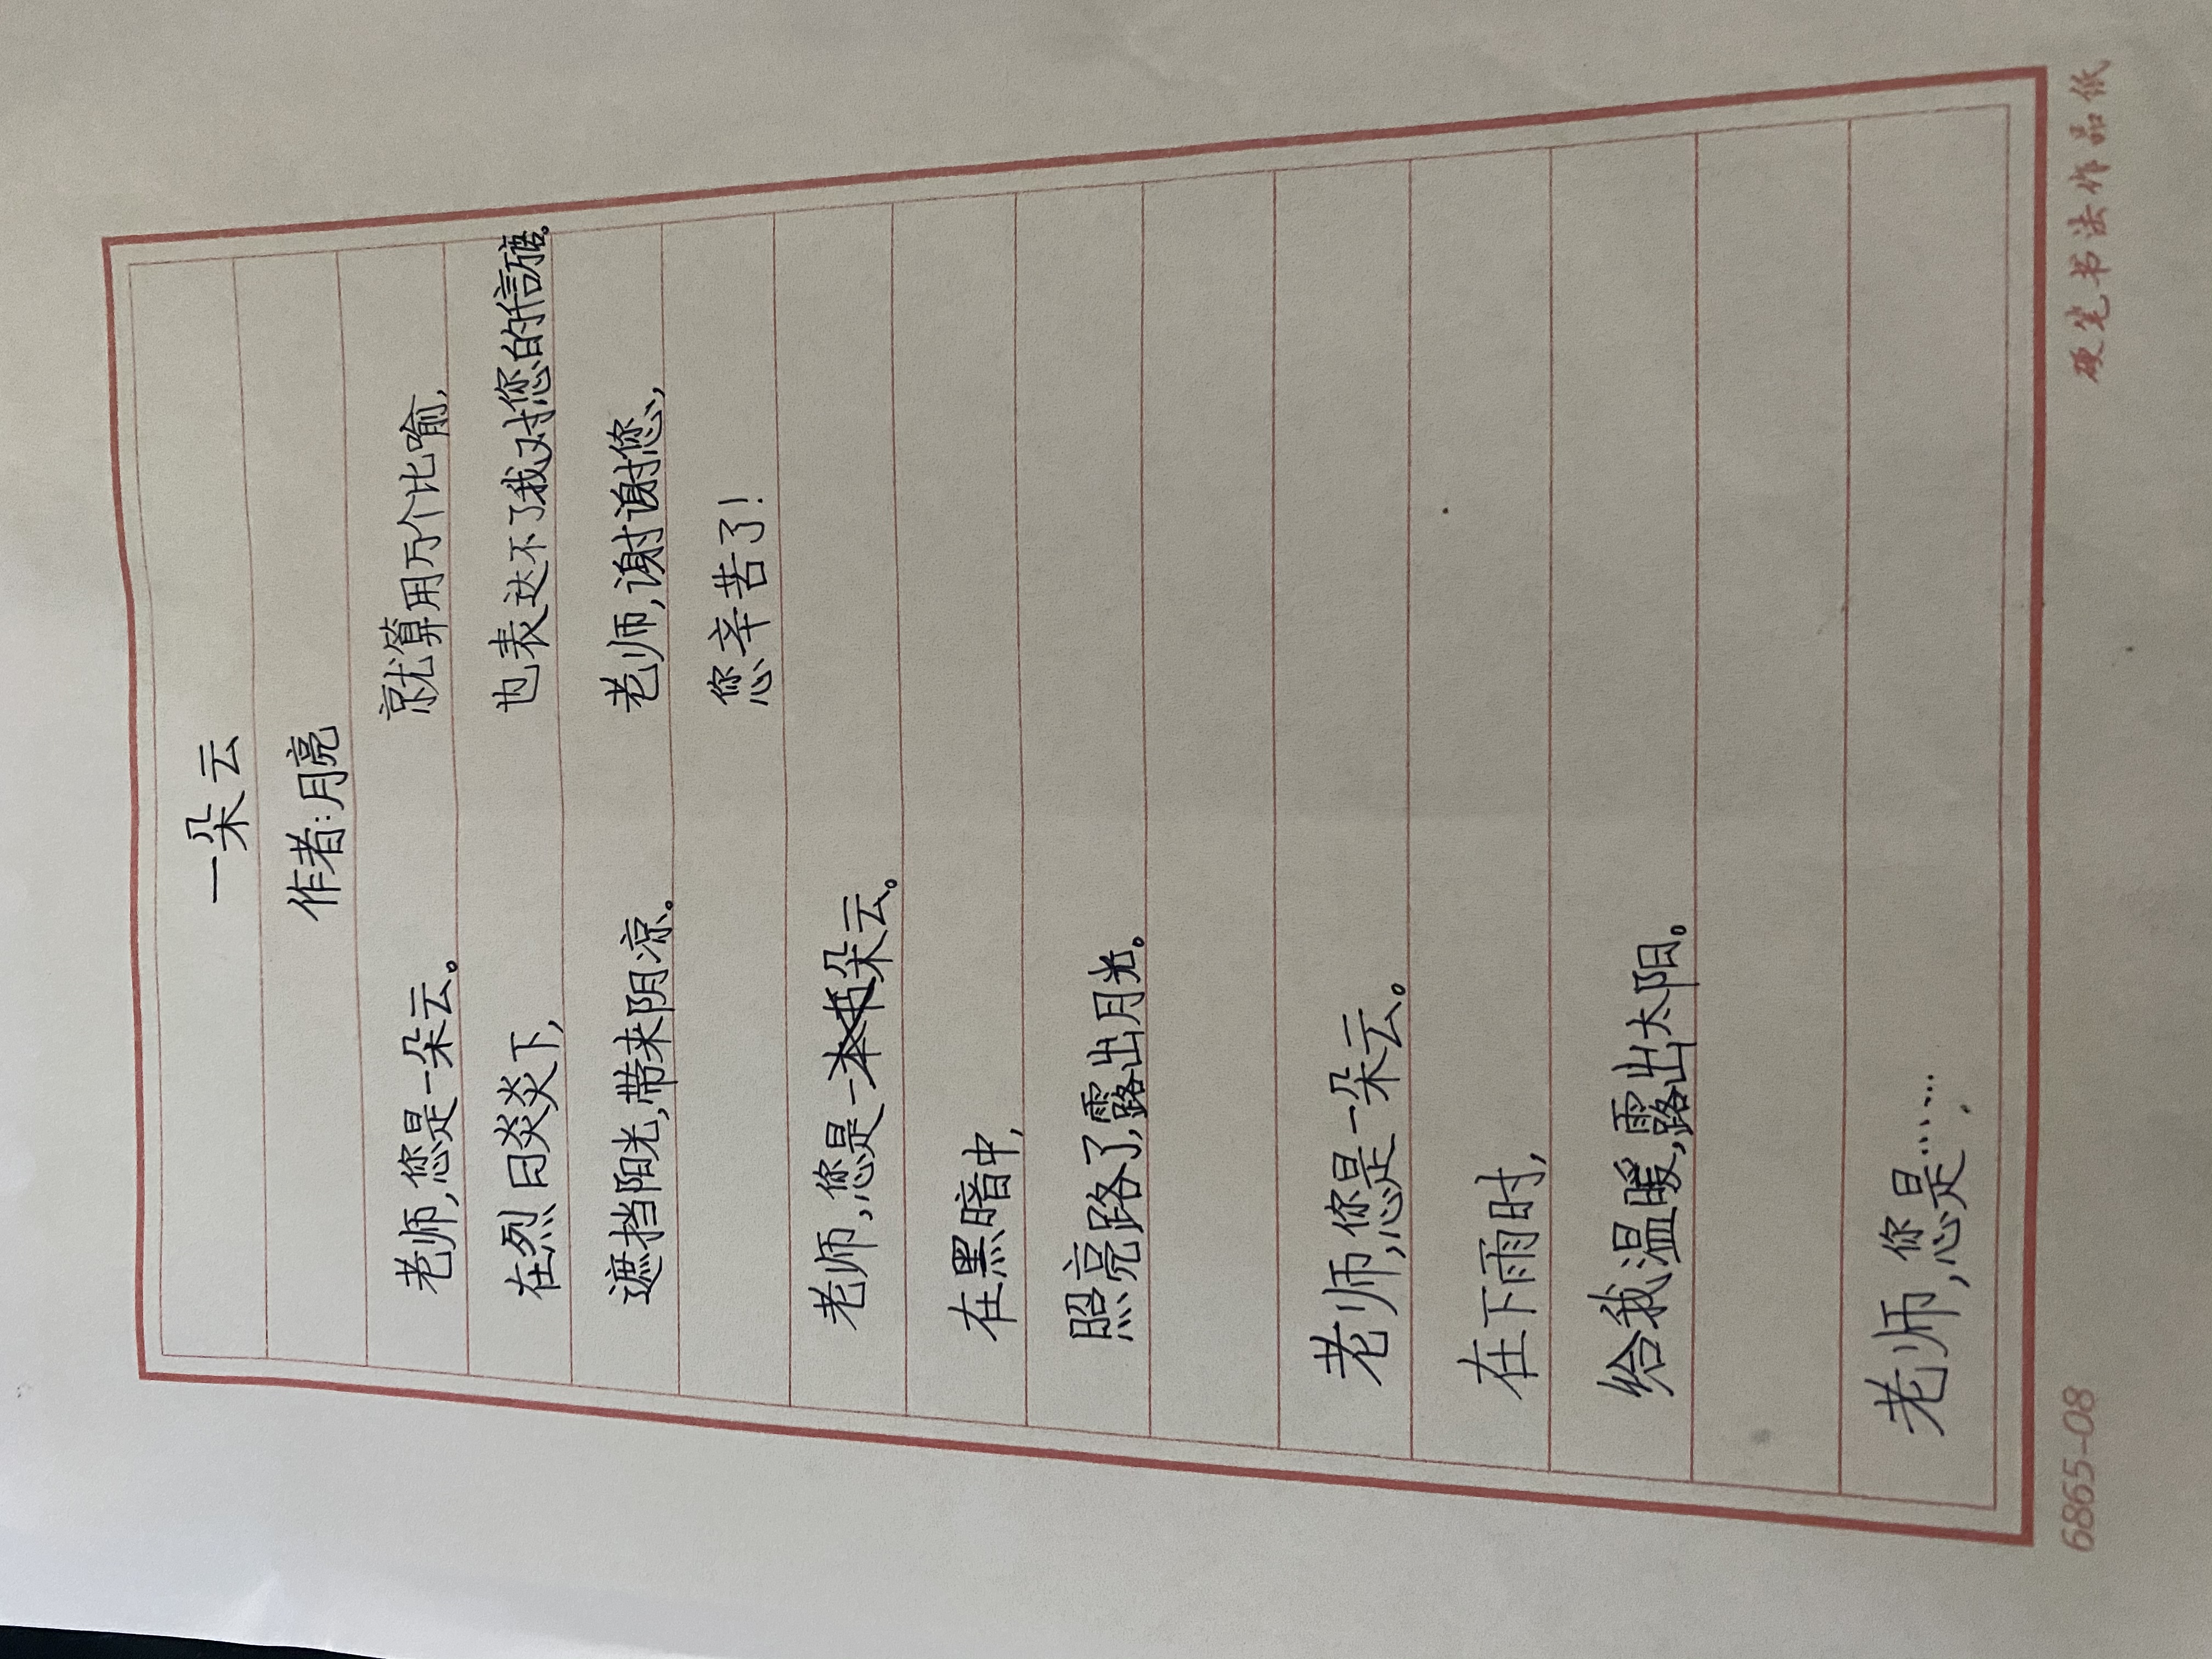 一朵云
作者:月亮
老师,您是一朵云。
在烈日炎炎下,
遮挡阳光,带来阴凉。
老师,您是一朵云。
在黑暗中,
照亮路了,露出月光。
老师,您是一朵云。
在下雨时,
给我温暖,露出太阳。
老师,您是……
就算用万个比喻,
也表达不了我对您的
老师,谢谢您,
您辛苦了!
6865-08
硬笔书法作品纸